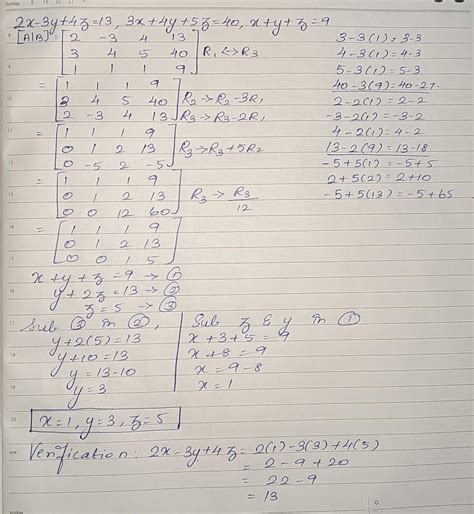 2x-3y+4z=13, 3x+4y+5z=40, x+y+z=9
[A|B] = [2 -3 4 13
3 4 5 40
1 1 1 9] R1↔R3
= [1 1 1 9
3 4 5 40
2 -3 4 13] R2→R2-3R1
R3→R3-2R1
= [1 1 1 9
0 1 2 13
0 -5 2 -5] R3→R3+5R2
= [1 1 1 9
0 1 2 13
0 0 12 60] R3→R3/12
= [1 1 1 9
0 1 2 13
0 0 1 5]
3-3(1)=3-3
4-3(1)=4-3
5-3(1)=5-3
40-3(9)=40-27
2-2(1)=2-2
-3-2(1)=-3-2
4-2(1)=4-2
13-2(9)=13-18
-5+5(1)=-5+5
2+5(2)=2+10
-5+5(13)=-5+65
x+y+z=9→①
y+2z=13→②
z=5→③
Sub ③ in ②,
y+2(5)=13
y+10=13
y=13-10
y=3
Sub z & y in ①
x+3+5=9
x+8=9
x=9-8
x=1
x=1, y=3, z=5
Verification: 2x-3y+4z=2(1)-3(3)+4(5)
= 2-9+20
= 22-9
= 13